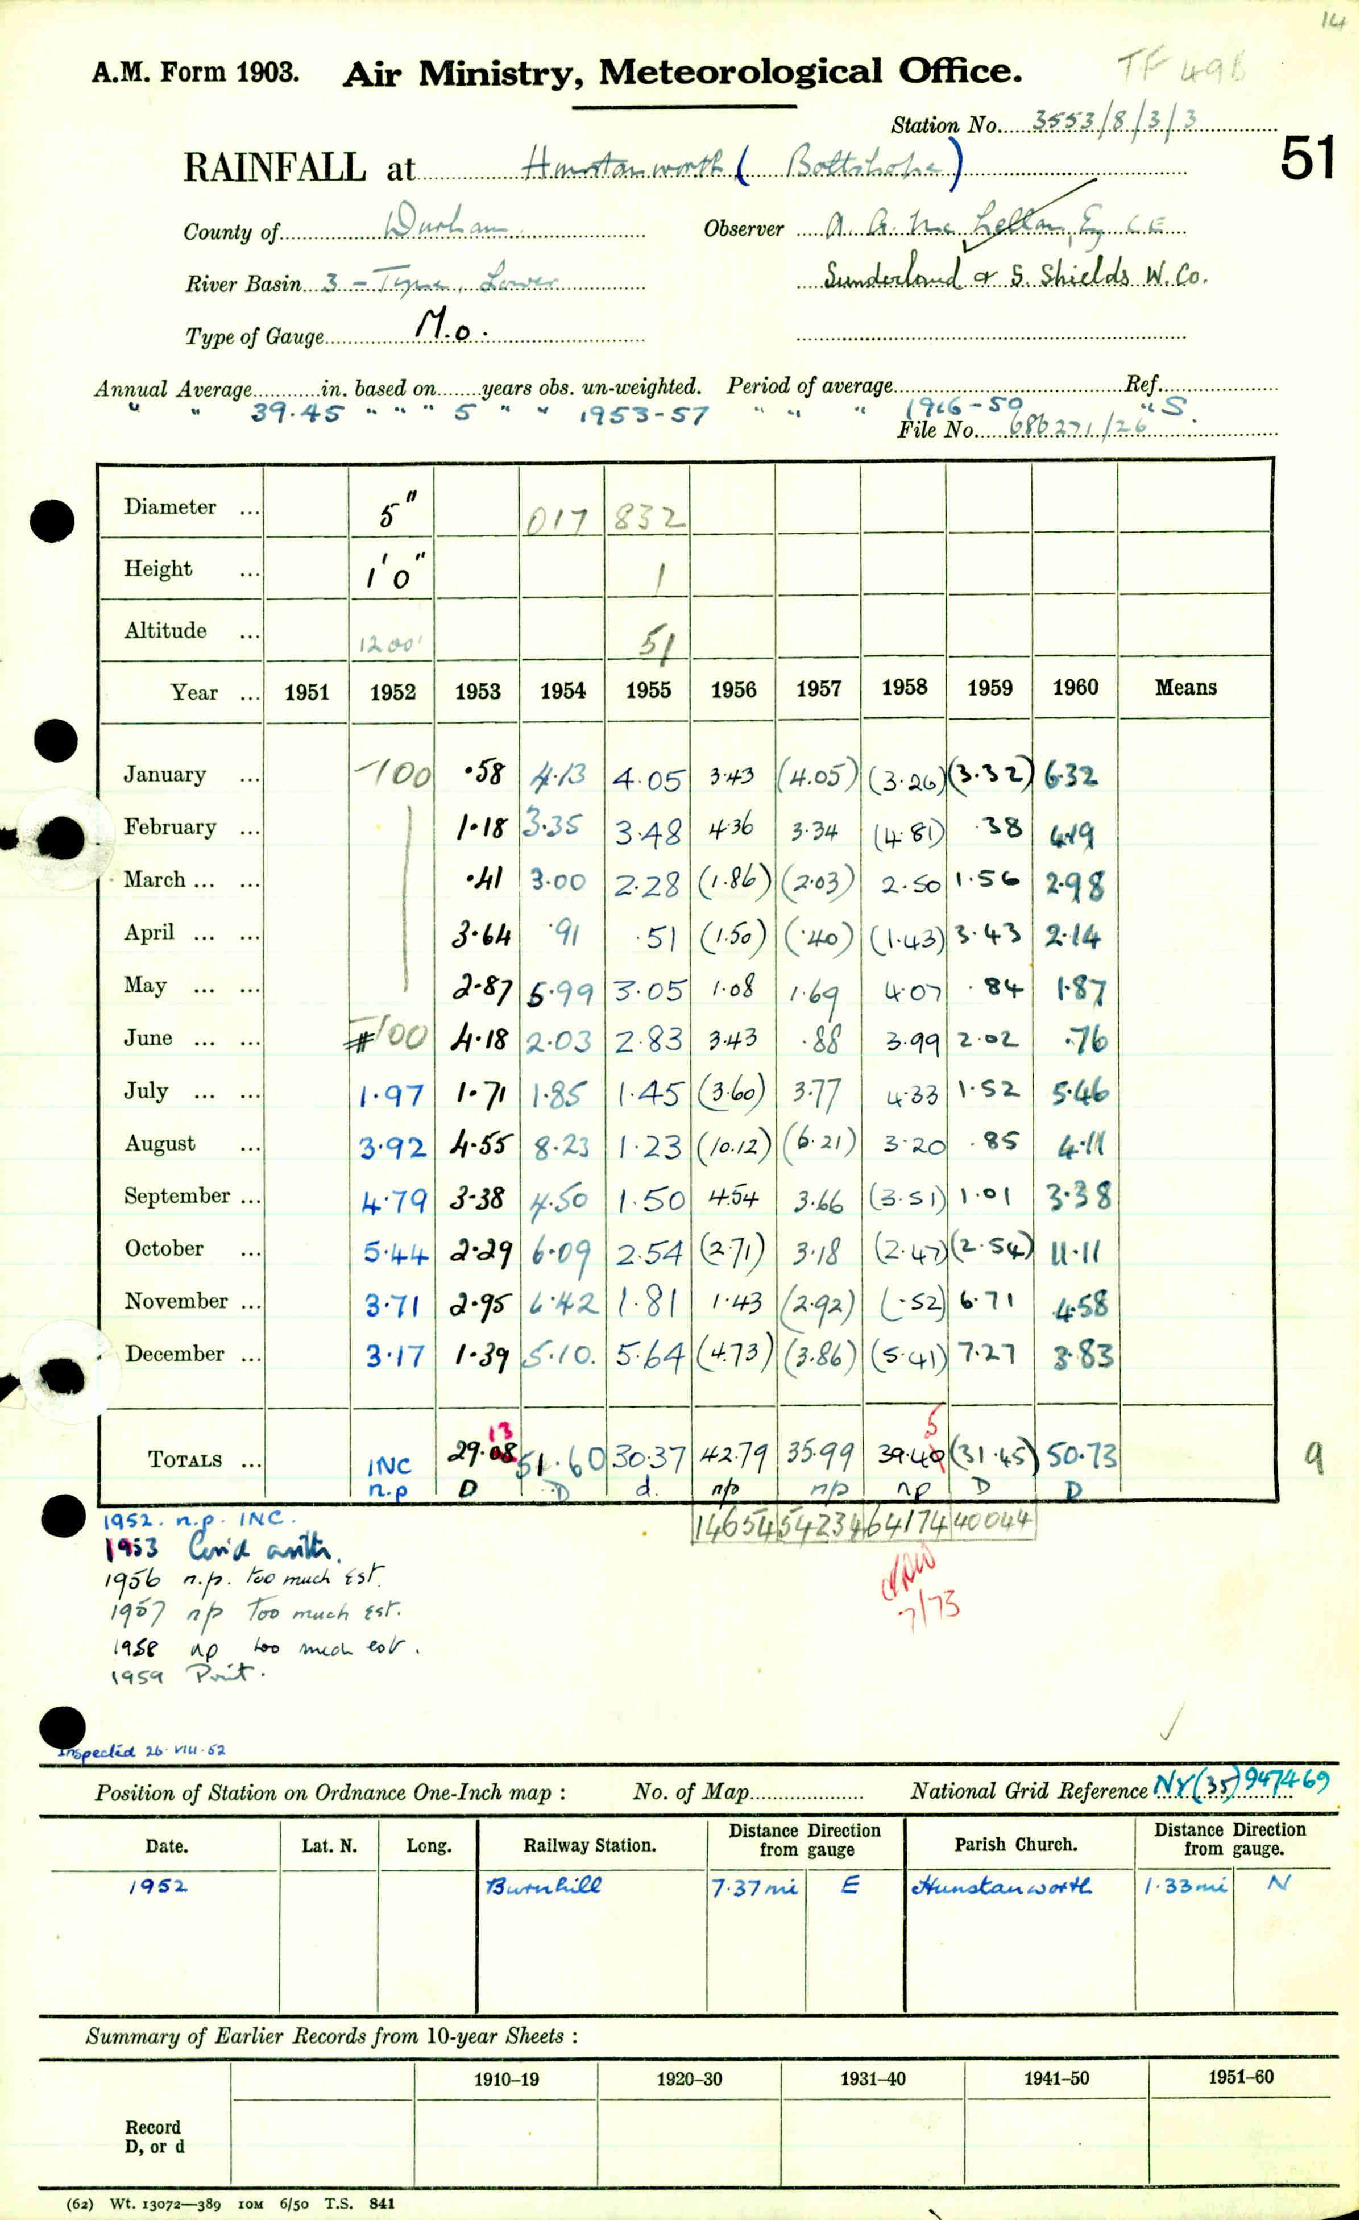 14
A.M. Form 1903. Air Ministry, Meteorological Office. TF 49B
Station No. 3553/8/3/3
51
RAINFALL at Hunstanworth (Boltshope)
County of Durham Observer A. G. Mc Lellan, Esq CE
River Basin 3 - Tyne, Lower Sunderland & S. Shields W. Co.
Type of Gauge M.O.
Annual Average in. based on years obs. un-weighted. Period of average Ref.
" " 39.45 " " " 5 " " 1953-57 " " " 1916-50 " S.
File No. 686271/26
Diameter ... 5" 017 832
Height ... 1'0" 1
Altitude ... 1200' 51
Year ... 1951 1952 1953 1954 1955 1956 1957 1958 1959 1960 Means
January ... -100 .58 4.13 4.05 3.43 (4.05) (3.26) (3.32) 6.32
February ... 1.18 3.35 3.48 4.36 3.34 (4.81) .38 4.19
March ... ... .41 3.00 2.28 (1.86) (2.03) 2.50 1.56 2.98
April ... ... 3.64 .91 .51 (1.50) (.40) (1.43) 3.43 2.14
May ... ... 2.87 5.99 3.05 1.08 1.69 4.07 .84 1.87
June ... ... -100 4.18 2.03 2.83 3.43 .88 3.99 2.02 .76
July ... ... 1.97 1.71 1.85 1.45 (3.60) 3.77 4.33 1.52 5.46
August ... 3.92 4.55 8.23 1.23 (10.12) (6.21) 3.20 .85 4.11
September ... 4.79 3.38 4.50 1.50 4.54 3.66 (3.51) 1.01 3.38
October ... 5.44 2.29 6.09 2.54 (2.71) 3.18 (2.47) (2.54) 11.11
November ... 3.71 2.95 6.42 1.81 1.43 (2.92) (.52) 6.71 4.58
December ... 3.17 1.39 5.10. 5.64 (4.73) (3.86) (5.41) 7.27 3.83
13 5
Totals ... INC 29.08 51.60 30.37 42.79 35.99 39.40 (31.45) 50.73 9
n.p D D d. n/p n/p np D D
14654 54234 64174 40044
1952. n.p. INC.
1953 Corr'd arith.
1956 n.p. too much Est.
1957 n/p Too much est.
1958 np too much est.
7/73
1959 Print.
Inspected 26.VIII.52
Position of Station on Ordnance One-Inch map : No. of Map National Grid Reference NY(35)947469
Date. Lat. N. Long. Railway Station. Distance from Direction gauge Parish Church. Distance from Direction gauge.
1952 Burnhill 7.37mi E Hunstanworth 1.33mi N
Summary of Earlier Records from 10-year Sheets :
1910–19 1920–30 1931–40 1941–50 1951–60
Record
D, or d
(62) Wt. 13072—389 10M 6/50 T.S. 841